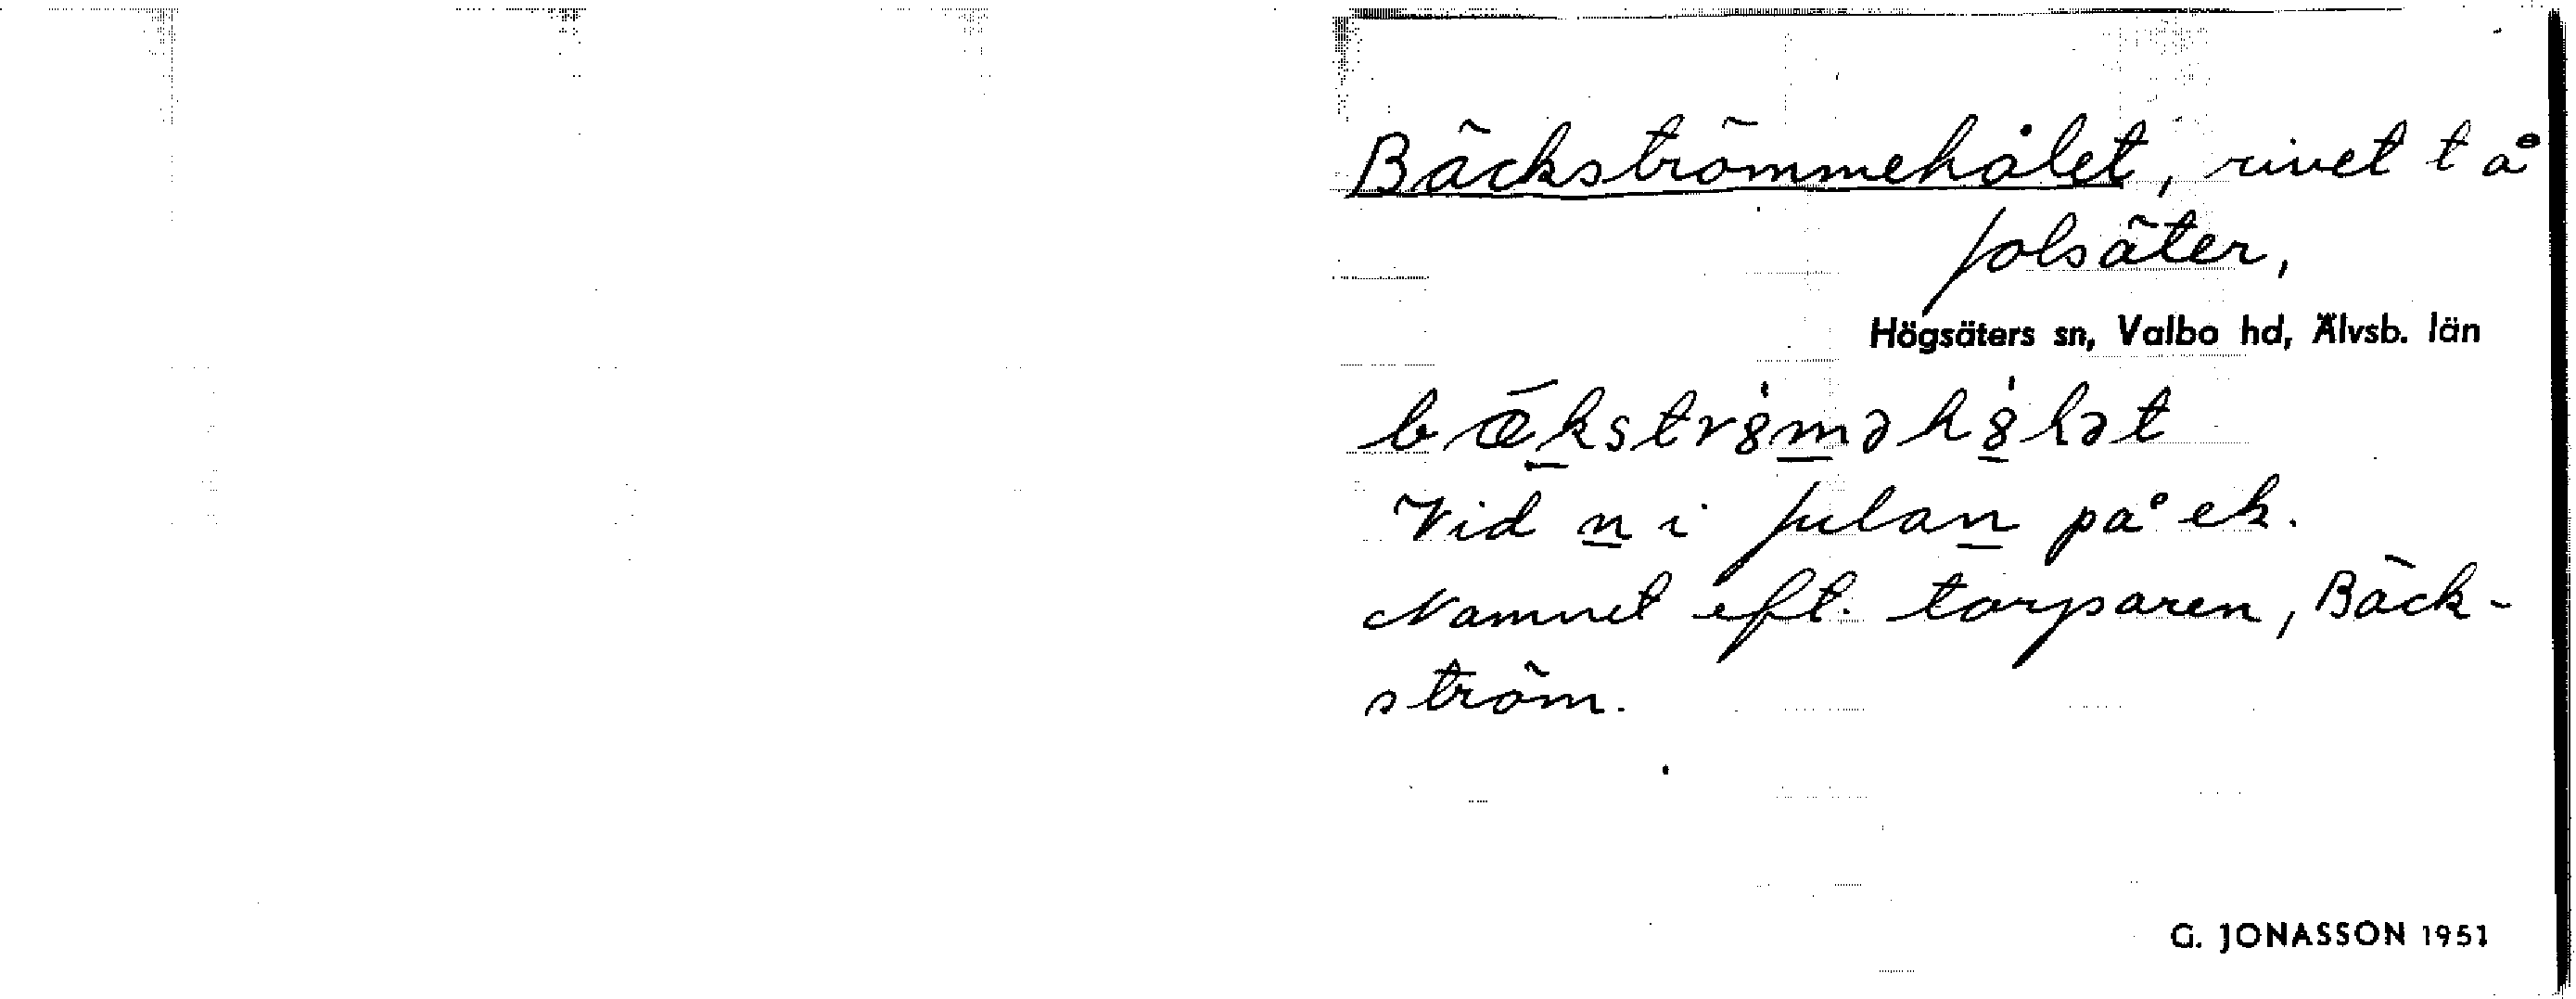 Bäckströmmehålet, rivet t å
Jolsäter,
Högsäters sn, Valbo hd, Älvsb. län
Vid n i Julan på ek.
Namnet eft. torparen, Bäck-
ström.
G. JONASSON 1951